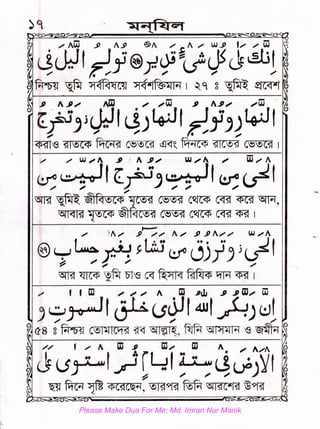 ১৭
মনযিল
اِنَّكَ عَلٰى كُلِّ شَىْءٍ قَدِيْرٌ ۝۲۶ تُوْلِجُ الَّيْلَ فِى
নিশ্চয় তুমি সর্ববিষয়ে সর্বশক্তিমান। ২৭ ঃ তুমিই প্রবেশ
النَّهَارِ وَتُوْلِجُ النَّهَارَ فِى الَّيْلِ ز وَتُخْرِجُ
করাও রাতকে দিনের ভেতরে এবং দিনকে রাতের ভেতরে।
الْحَىَّ مِنَ الْمَيِّتِ وَتُخْرِجُ الْمَيِّتَ مِنَ
আর তুমিই জীবিতকে মৃতের ভেতর থেকে বের করে আন,
আবার মৃতকে জীবিতের ভেতর থেকে বের কর।
الْحَىِّ ز وَتَرْزُقُ مَنْ تَشَآءُ بِغَيْرِ حِسَابٍ ۝۲۷
আর যাকে তুমি চাও বে হিসাব রিজিক দান কর।
اِنَّ رَبَّكُمُ اللهُ الَّذِىْ خَلَقَ السَّمٰوٰتِ وَ
৫৪ ঃ নিশ্চয় তোমাদের রব আল্লাহ, যিনি আসমান ও জমীন
الْاَرْضَ فِىْ سِتَّةِ اَيَّامٍ ثُمَّ اسْتَوٰى عَلَى
ছয় দিনে সৃষ্টি করেছেন, তারপর তিনি আরশের উপর
Please Make Dua For Me: Md. Imran Nur Manik